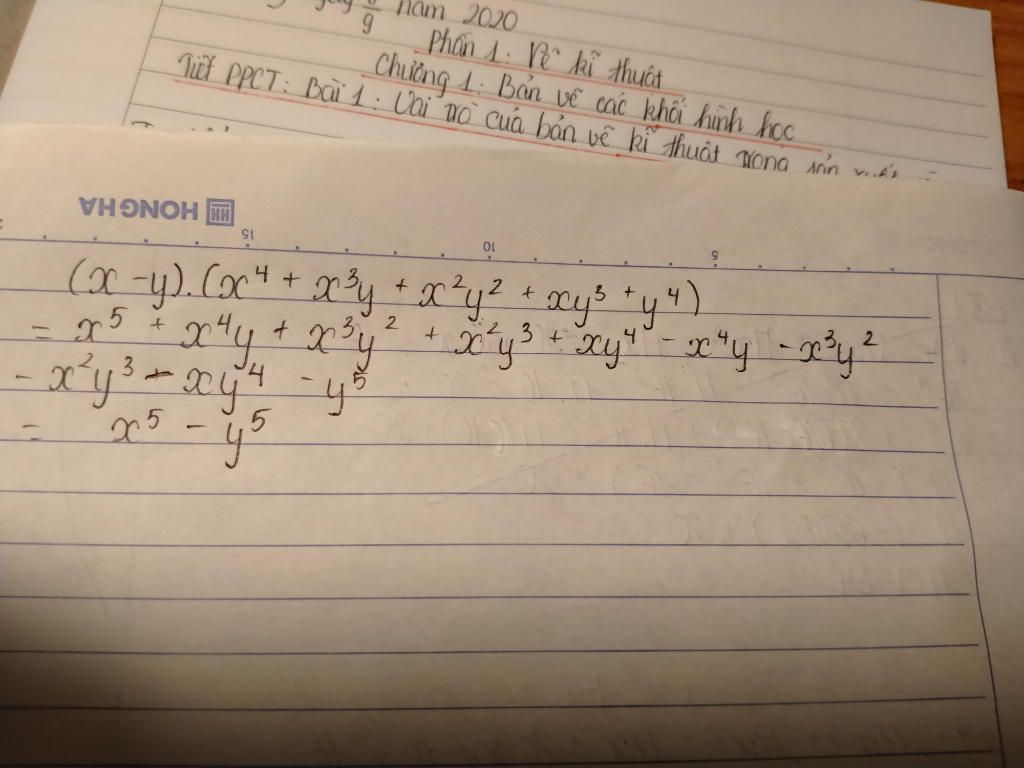 năm 2020
9
Phần 1: Vẽ kĩ thuật
Chương 1: Bản vẽ các khối hình học
Tiết PPCT: Bài 1: Vai trò của bản vẽ kĩ thuật trong sản
HONG HA
15 10 5
(x - y).(x⁴ + x³y + x²y² + xy³ + y⁴)
= x⁵ + x⁴y + x³y² + x²y³ + xy⁴ - x⁴y - x³y²
- x²y³ - xy⁴ - y⁵
= x⁵ - y⁵